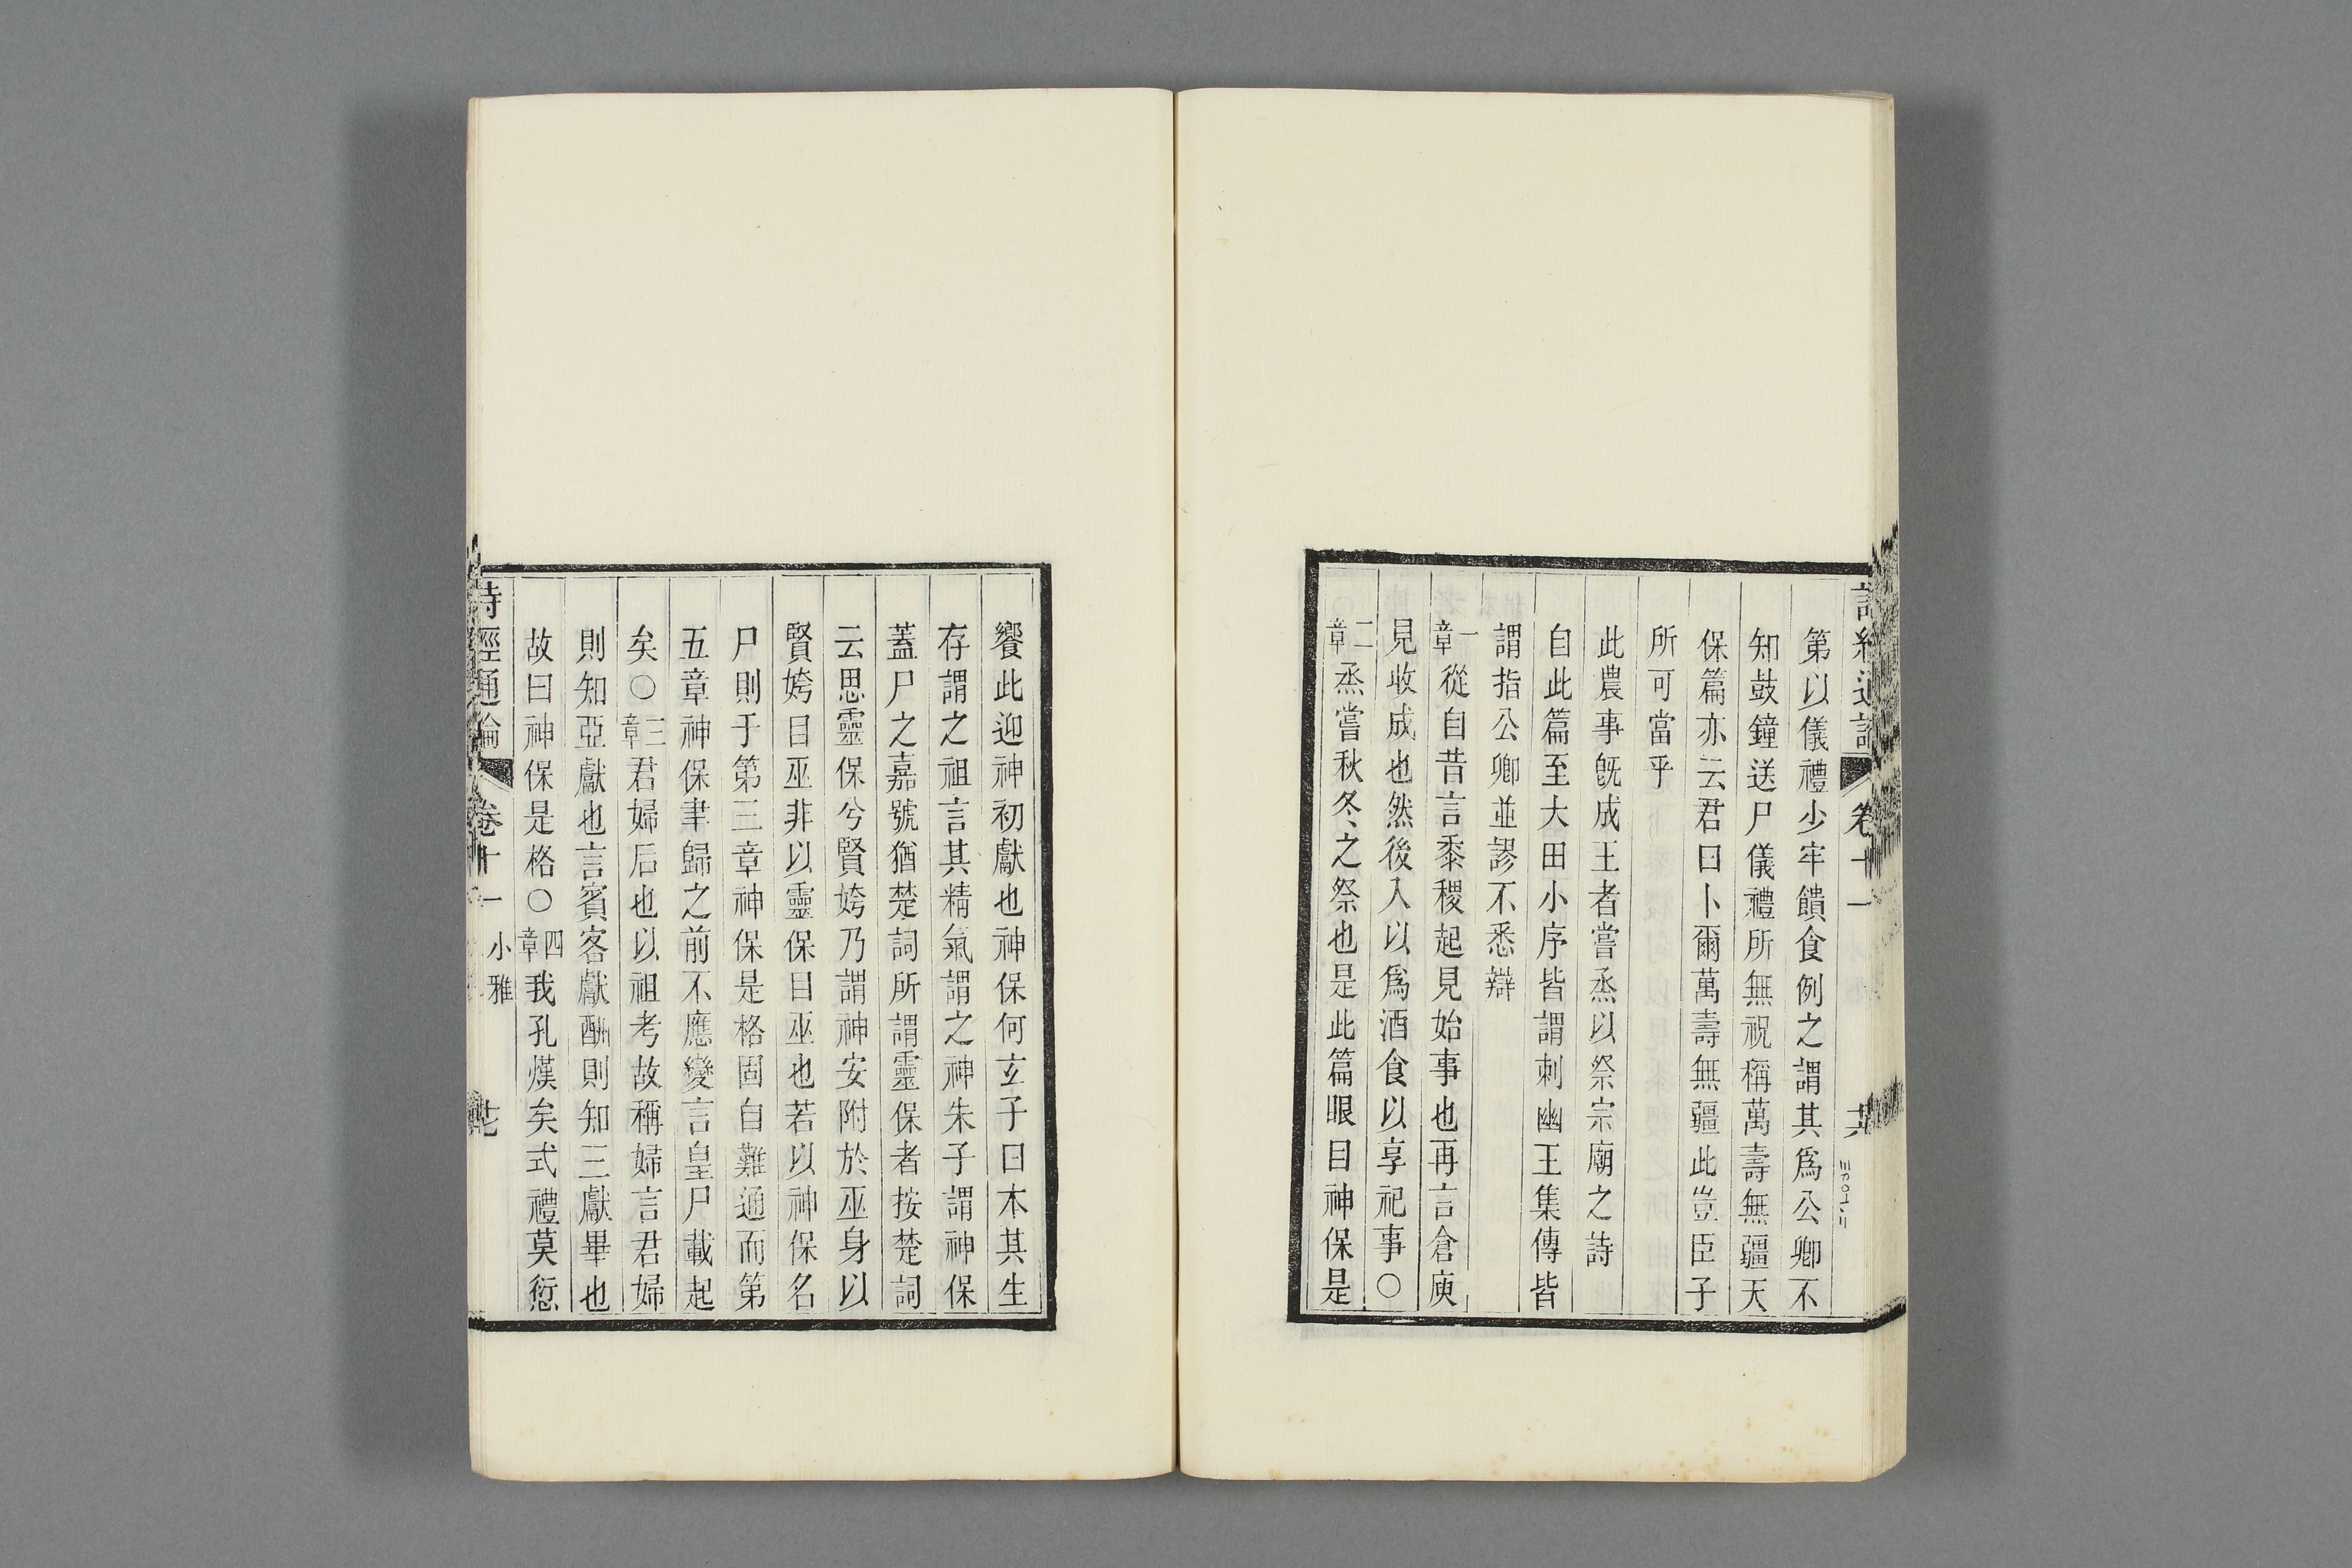 詩經通論 卷十一
第以儀禮少牢饋食例之謂其爲公卿不
知鼓鐘送尸儀禮所無祝稱萬壽無疆天
保篇亦云君曰卜爾萬壽無疆此豈臣子
所可當乎
此農事旣成王者嘗烝以祭宗廟之詩
自此篇至大田小序皆謂刺幽王集傳皆
謂指公卿並謬不悉辯
一章從自昔言黍稷起見始事也再言倉庾
見收成也然後入以爲酒食以享祀事〇
二章烝嘗秋冬之祭也是此篇眼目神保是
饗此迎神初獻也神保何玄子曰本其生
存謂之祖言其精氣謂之神朱子謂神保
蓋尸之嘉號猶楚詞所謂靈保者按楚詞
云思靈保兮賢姱乃謂神安附於巫身以
賢姱目巫非以靈保目巫也若以神保名
尸則于第三章神保是格固自難通而第
五章神保聿歸之前不應變言皇尸載起
矣〇三章君婦后也以祖考故稱婦言君婦
則知亞獻也言賓客獻酬則知三獻畢也
故曰神保是格〇四章我孔熯矣式禮莫愆
詩經通論 卷十一 小雅